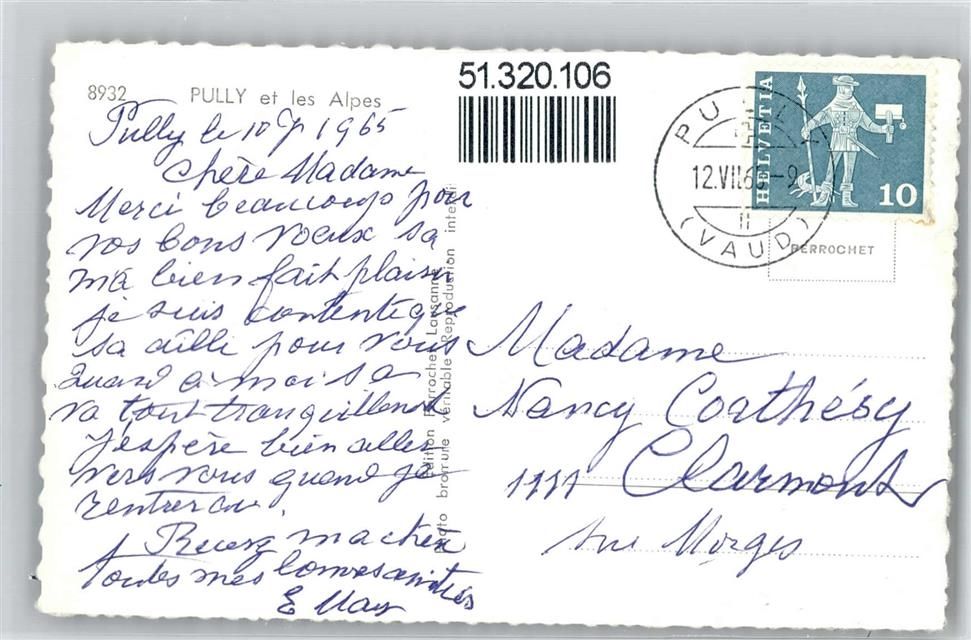 8932 PULLY et les Alpes
Pully le 10 7 1965
Chère Madame
Merci beaucoup pour
vos bons voeux sa
ma bien fait plaisir
je suis contente que
sa aille pour vous
Quand a moi sa
va tout tranquillement
J'espère bien aller
vers vous quand je
rentrerai.
Recevez ma chère
toutes mes bonnes amitiés
E
Edition Perrochet Lausanne
Photo bromure véritable Reproduction interdi
51.320.106
HELVETIA
10
PU
12.VII.65-9
II
(VAUD)
PERROCHET
Madame
Nancy Corthésy
1111 Clarmont
sur Morges